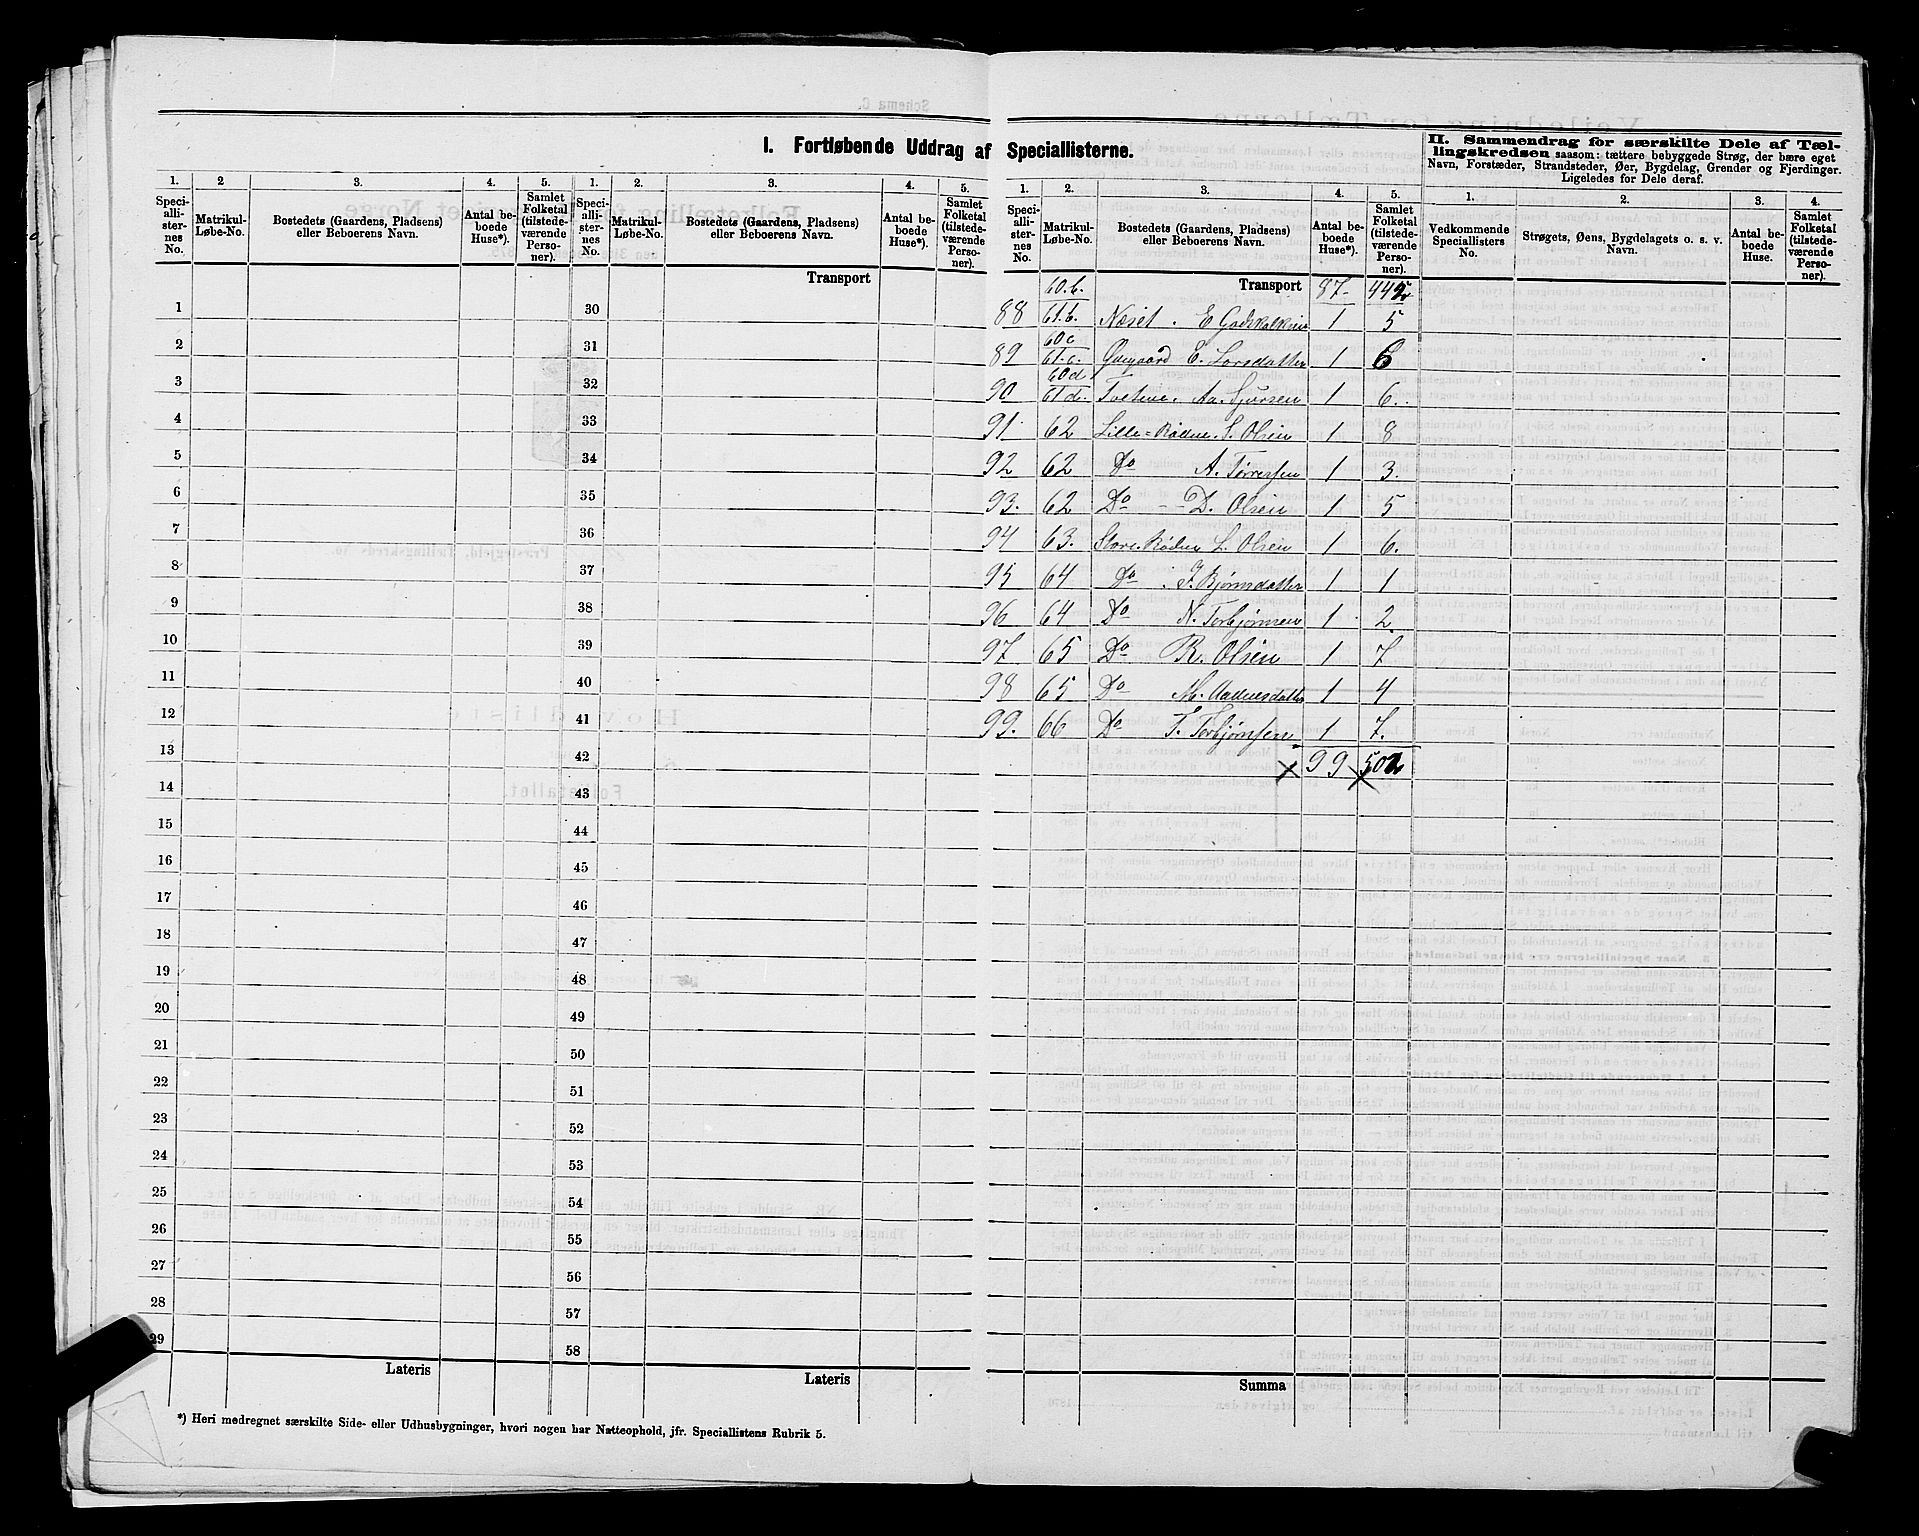 I. Fortløbende Uddrag af Speciallisterne.
II. Sammendrag for særskilte Dele af Tæl-
lingskredsen saasom: tættere bebyggede Strøg, der bære eget
Navn, Forstæder, Strandsteder, Øer, Bygdelag, Grender og Fjerdinger.
Ligeledes for Dele deraf.
1. 2 3. 4. 5. 1. 2. 3. 4. 5. 1. 2. 3. 4. 5. 1. 2. 3. 4.
Speciallisternes No. Matrikul-Løbe-No. Bostedets (Gaardens, Pladsens) eller Beboerens Navn. Antal beboede Huse*). Samlet Folketal (tilstedeværende Personer).
Speciallisternes No. Matrikul-Løbe-No. Bostedets (Gaardens, Pladsens) eller Beboerens Navn. Antal beboede Huse*). Samlet Folketal (tilstedeværende Personer).
Speciallisternes No. Matrikul-Løbe-No. Bostedets (Gaardens, Pladsens) eller Beboerens Navn. Antal beboede Huse*). Samlet Folketal (tilstedeværende Personer).
Vedkommende Speciallisters No. Strøgets, Øens, Bygdelagets o. s. v. Navn. Antal beboede Huse. Samlet Folketal (tilstedeværende Personer).
Transport
1 30
2 31
3 32
4 33
5 34
6 35
7 36
8 37
9 38
10 39
11 40
12 41
13 42
14 43
15 44
16 45
17 46
18 47
19 48
20 49
21 50
22 51
23 52
24 53
25 54
26 55
27 56
28 57
29 58
Lateris Lateris
Transport 87 445
88 60.b. 61.b. Næset. E 1 5
89 60c 61.c. Ødegaard E. Larsdatter 1 6
90 60d 61d. 1 6.
91 62 Lille= S. Olsen 1 8
92 62 Do A. Tørresen 1 3.
93. 62 Do D. Olsen 1 5
94 63. Store L. Olsen 1 6.
95 64 Do Bjørnsdatter 1 1
96 64 Do N. Torbjørnsen 1 2
97 65 Do R. Olsen 1 7
98 65 Do M. 1 4
99. 66 Do T. Torbjørnsen 1 7.
99 502
Summa
*) Heri medregnet særskilte Side- eller Udhusbygninger, hvori nogen har Natteophold, jfr. Speciallistens Rubrik 5.